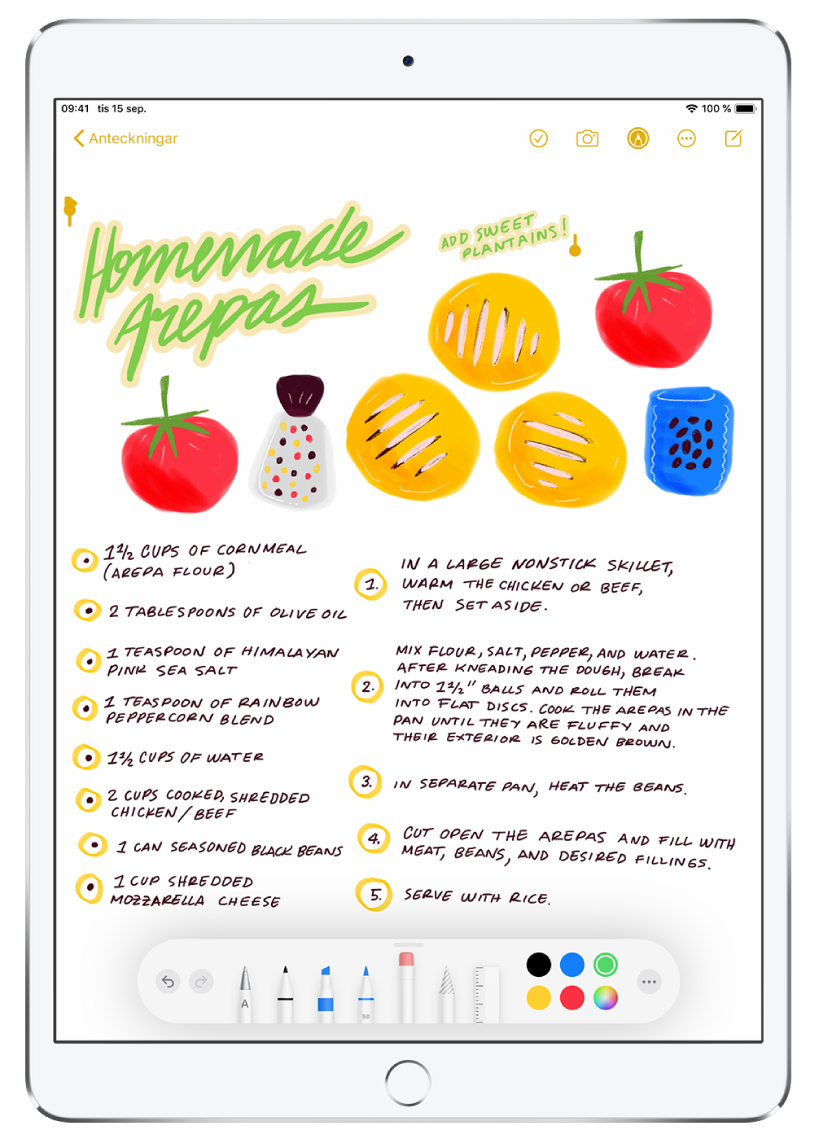 09:41 tis 15 sep.
100 %
Anteckningar
Homemade
Arepas
ADD SWEET
PLANTAINS!
1 1/2 CUPS OF CORNMEAL
(AREPA FLOUR)
2 TABLESPOONS OF OLIVE OIL
1 TEASPOON OF HIMALAYAN
PINK SEA SALT
1 TEASPOON OF RAINBOW
PEPPERCORN BLEND
1 1/2 CUPS OF WATER
2 CUPS COOKED, SHREDDED
CHICKEN/BEEF
1 CAN SEASONED BLACK BEANS
1 CUP SHREDDED
MOZZARELLA CHEESE
1. IN A LARGE NONSTICK SKILLET,
WARM THE CHICKEN OR BEEF,
THEN SET ASIDE.
2. MIX FLOUR, SALT, PEPPER, AND WATER.
AFTER KNEADING THE DOUGH, BREAK
INTO 1 1/2" BALLS AND ROLL THEM
INTO FLAT DISCS. COOK THE AREPAS IN THE
PAN UNTIL THEY ARE FLUFFY AND
THEIR EXTERIOR IS GOLDEN BROWN.
3. IN SEPARATE PAN, HEAT THE BEANS.
4. CUT OPEN THE AREPAS AND FILL WITH
MEAT, BEANS, AND DESIRED FILLINGS.
5. SERVE WITH RICE.
A
50